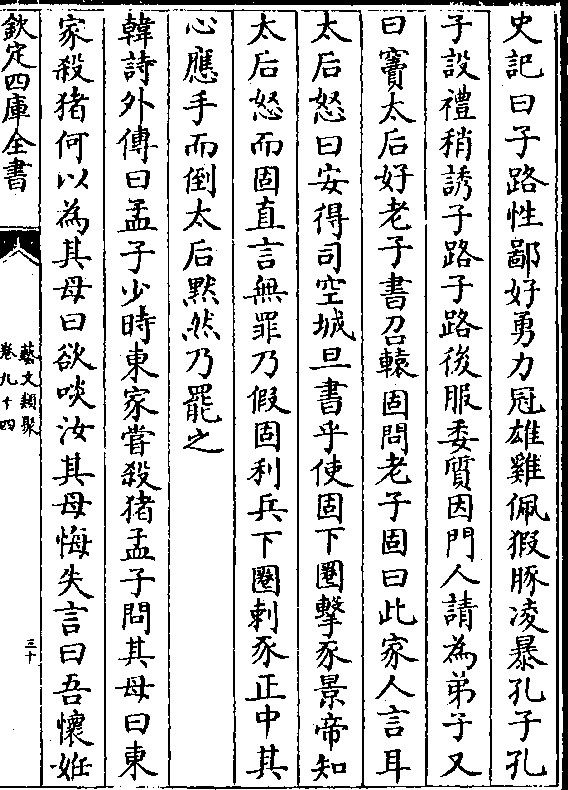 史記曰子路性鄙好勇力冠雄雞佩猳豚凌暴孔子孔
子設禮稍誘子路子路後服委質因門人請為弟子又
曰竇太后好老子書召轅固問老子固曰此家人言耳
太后怒曰安得司空城旦書乎使固下圈擊豕景帝知
太后怒而固直言無罪乃假固利兵下圈刺豕正中其
心應手而倒太后黙然乃罷之
韓詩外傳曰孟子少時東家嘗殺猪孟子問其母曰東
家殺猪何以為其母曰欲啖汝其母悔失言曰吾懷姙
欽定四庫全書
藝文類聚
卷九十四
三十